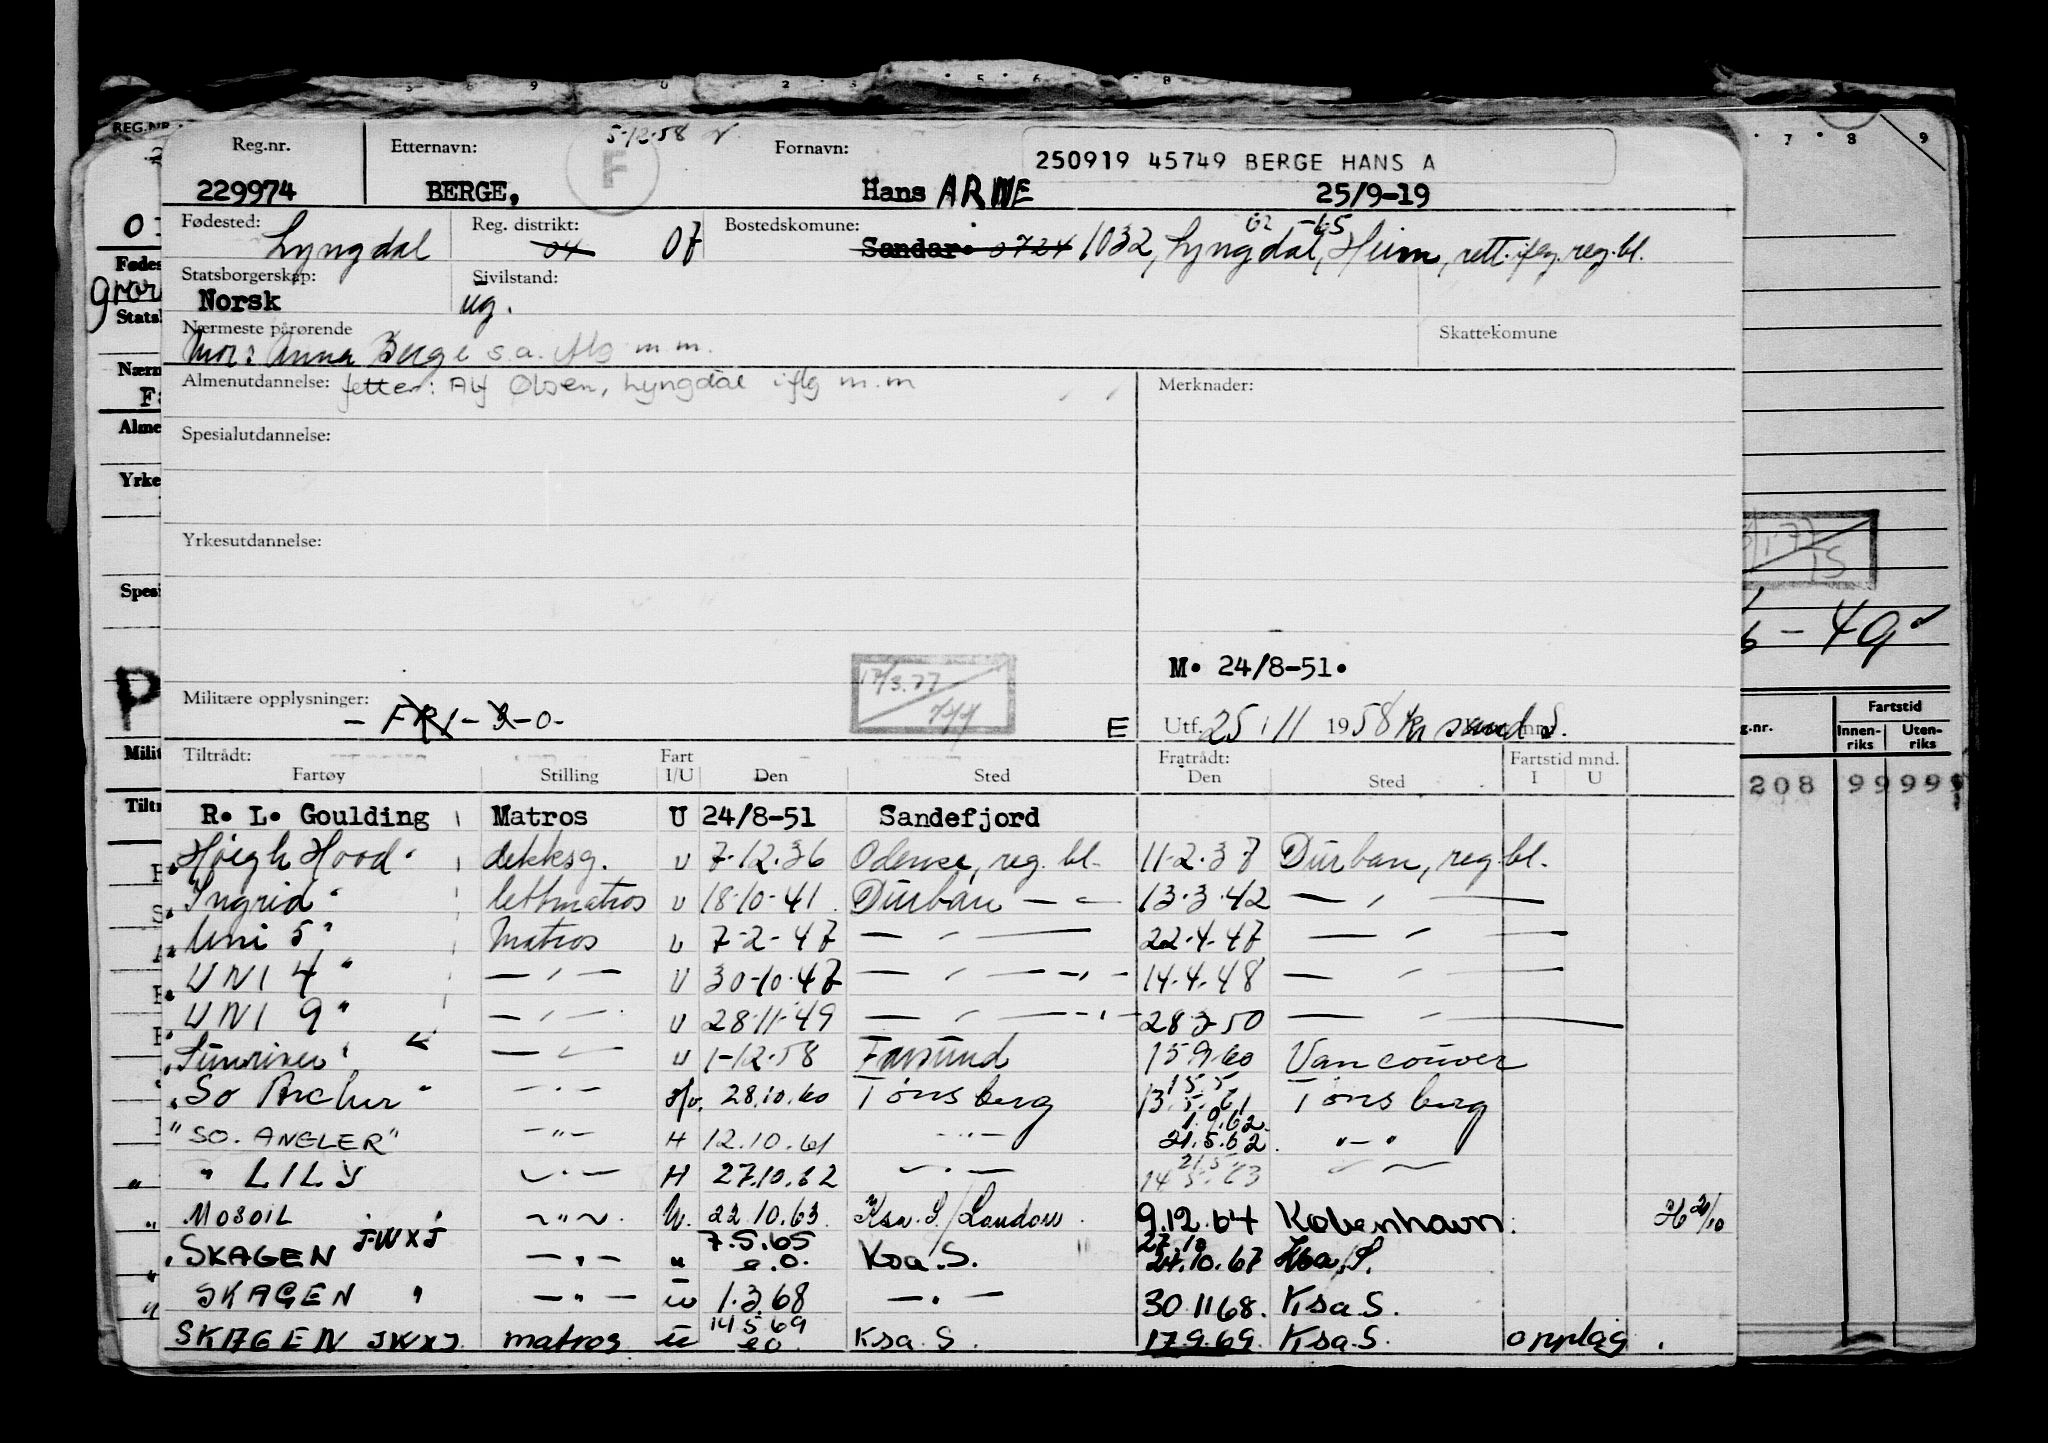 5-12-58
Reg.nr. Etternavn: F Fornavn: 250919 45749 BERGE HANS A
229974 BERGE, Hans ARNE 25/9-19
Fødested: Lyngdal Reg. distrikt: 04 07 Bostedskomune: Sandar. 0724 1032, Lyngdal, Heim, rett. iflg. reg.bl.
02 -65
Statsborgerskap: Sivilstand:
Norsk ug.
Nærmeste pårørende Skattekomune
Mor: Anna Berge s.a. iflg m.m.
Almenutdannelse: fetter: Alf Olsen, Lyngdal iflg m.m Merknader:
Spesialutdannelse:
Yrkesutdannelse:
M. 24/8-51.
Militære opplysninger: 17/3.77
- FRI - 3-0- E Utf. 25/11 1958 Kr sand S.
Tiltrådt: Fart Fratrådt: Fartstid mnd.
Fartøy Stilling I/U Den Sted Den Sted I U
R. L. Goulding Matros U 24/8-51 Sandefjord
"Høegh Hood" dekksg. U 7-12-36 Odense, reg. bl. 11-2-37 Durban, reg.bl.
"Ingrid" lettmatros U 18-10-41 Durban — " — 13-3-42 — " —
"Uni 5" Matros U 7-2-47 — " — 22-4-47 — " —
"UNI 4" — " — U 30-10-47 — " — 14-4-48 — " —
"UNI 9" — " — U 28-11-49 — " — 28-3-50 — " —
"Sunriver" — " — U 1-12-58 Farsund 15 9 60 Vancouver
"So Archer" — " — 28.10.60 Tønsberg 13.5.61 Tønsberg
15.5
"SO. ANGLER" — " — H 12.10.61 — " — 21.5.62 " — "
1.9.62
" LILY — " — H 27.10.62 — " — 14.5.63 — " —
21.5
" MOSOIL — " — U. 22.10.63 Ksa. S/London 9.12.64 København. H 20/10
"SKAGEN JWXJ — " — " 7.5.65 e.o. Ksa. S. 24.10.67 Ksa. S.
27.10
SKAGEN " — " — u 1.3.68 — " — 30.11 68. Ksa S.
SKAGEN JWXJ. matros u 14 5 69 eo Ksa. S. 17.9.69. Ksa. S. opplag.
Fartstid
Innen-riks Uten-riks
208 99 999
- 49